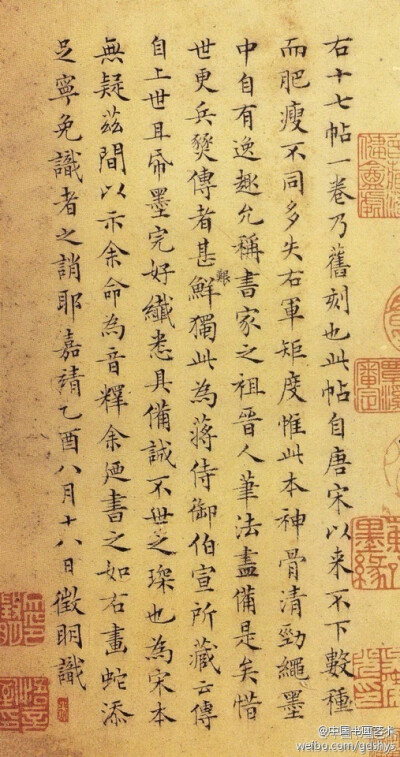 右十七帖一卷乃舊刻也此帖自唐宋以来不下數種
而肥瘦不同多失右軍矩度惟此本神骨清勁繩墨
中自有逸趣允稱書家之祖晉人筆法盡備是矣惜
世更兵燹傳者甚鮮獨此為蔣侍御伯宣所藏云傳
自上世且帋墨完好纖悉具備誠不世之琛也為宋本
無疑茲間以示余命為音釋余廼書之如右畫蛇添
足寧免識者之誚耶嘉靖乙酉八月十八日徵明識
墨緣
@中国书画艺术